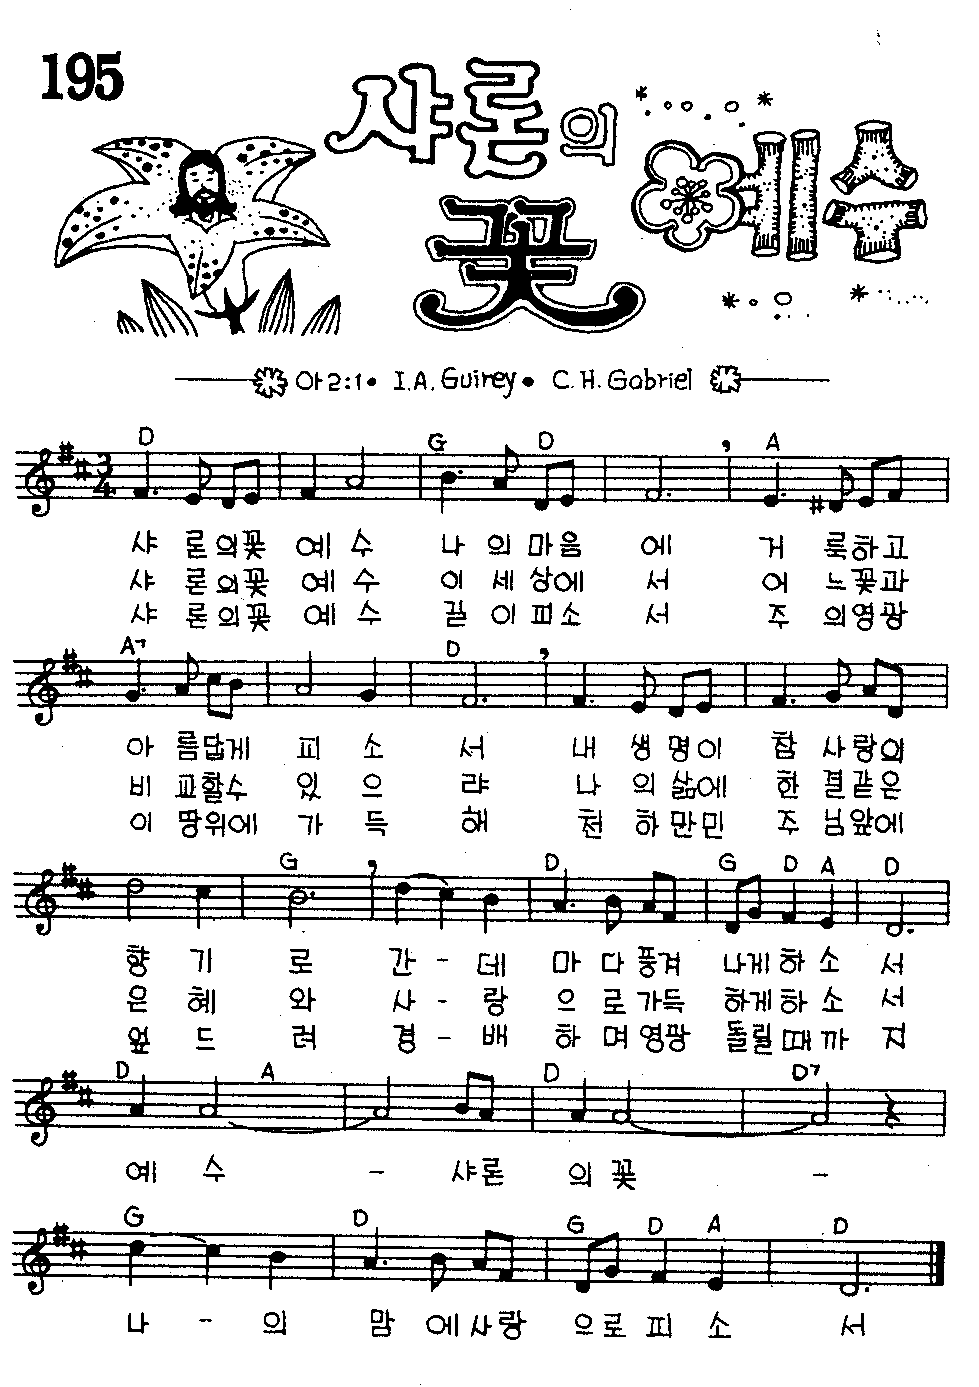 195
샤론의
꽃 예수
아2:1 • I.A. Guirey • C.H. Gabriel
D G D A
3/4
샤 론의꽃 예 수 나 의 마음 에 거 룩하고
샤 론의꽃 예 수 이 세 상에 서 어 느꽃과
샤 론의꽃 예 수 길 이피소 서 주 의영광
A7 D
아 름답게 피 소 서 내 생 명이 참 사랑의
비 교할수 있 으 랴 나 의 삶에 한 결같은
이 땅위에 가 득 해 천 하만민 주 님앞에
G D G D A D
향 기 로 간 - 데 마 다 풍겨 나게 하 소 서
은 혜 와 사 - 랑 으 로 가득 하게 하 소 서
엎 드 려 경 - 배 하 며 영광 돌릴 때 까 지
D A D D7
예 수 - 샤론 의 꽃 -
G D G D A D
나 - 의 맘 에 사랑 으로 피 소 서